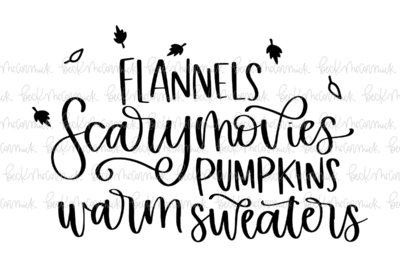 FLANNELS
Scary movies
PUMPKINS
warm sweaters